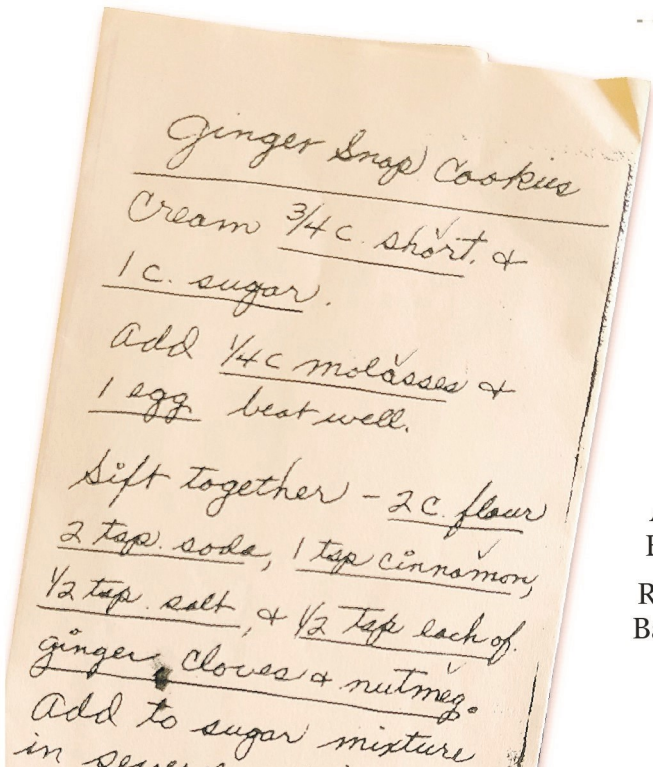 Ginger Snap Cookies
Cream 3/4 c. short. &
1 c. sugar.
Add 1/4 c molasses &
1 egg beat well.
Sift together - 2 c. flour
2 tsp. soda, 1 tsp cinnamon,
1/2 tsp. salt, & 1/2 tsp each of
ginger, cloves & nutmeg.
Add to sugar mixture
in
R
Ba